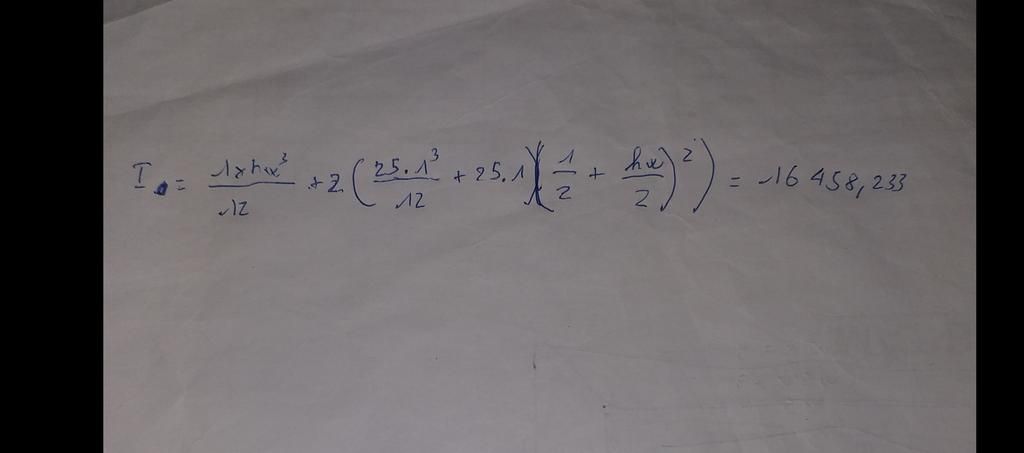 I = 1xhx³/12 + 2(25.1³/12 + 25.1)(1/2 + hx/2)²) = 16 458,233